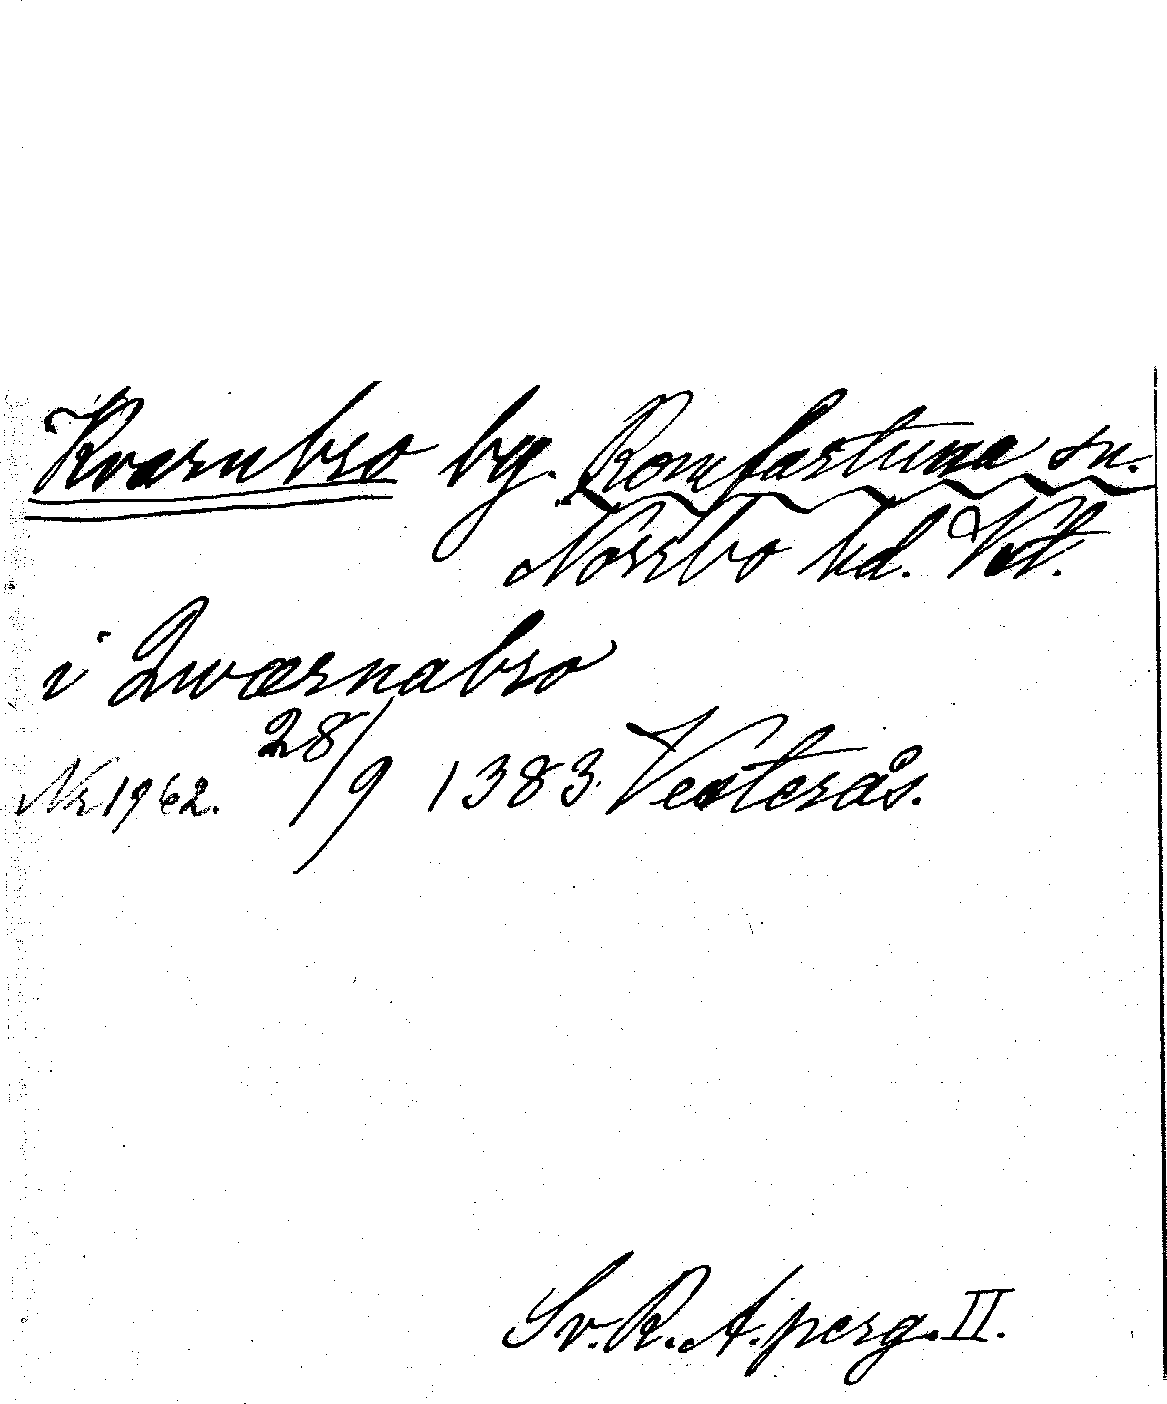 Kvarnbro by. Romfartuna sn.
Norrbo hd. Vstl.
i Qwærnabro
Nr 1962. 28/9 1383. Vesterås.
Sv. R. A. perg. II.